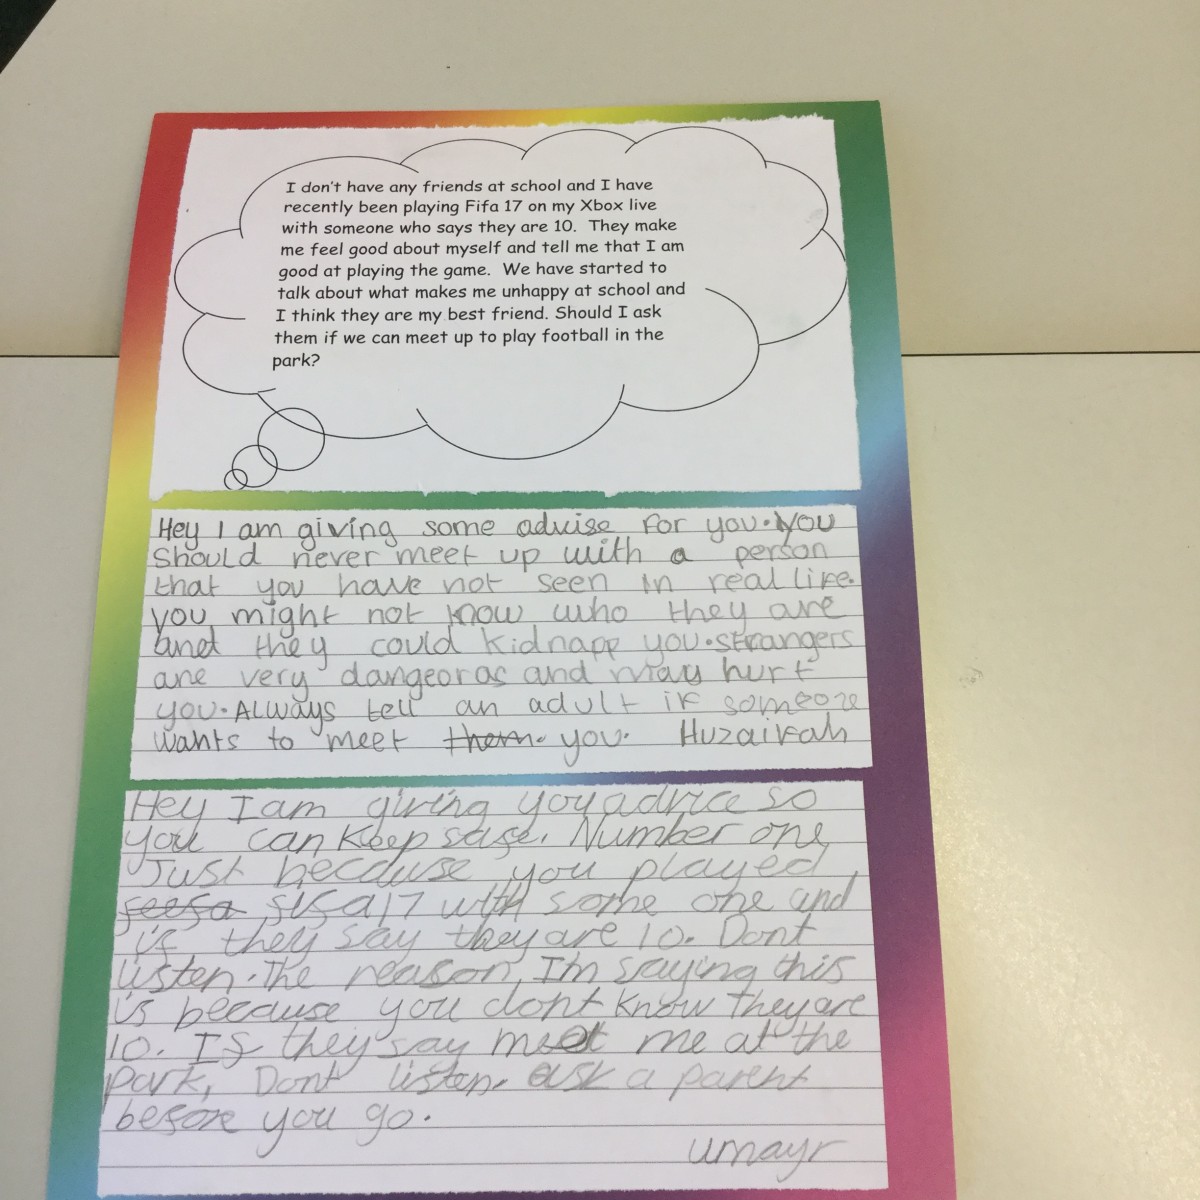 I don't have any friends at school and I have
recently been playing Fifa 17 on my Xbox live
with someone who says they are 10. They make
me feel good about myself and tell me that I am
good at playing the game. We have started to
talk about what makes me unhappy at school and
I think they are my best friend. Should I ask
them if we can meet up to play football in the
park?
Hey I am giving some advise for you. You
should never meet up with a person
that you have not seen in real life.
you might not know who they are
and they could kidnapp you. strangers
are very dangeoras and may hurt
you. Always tell an adult if someone
wants to meet them. you. Huzaifah
Hey I am giving you advice so
you can keep safe. Number one,
Just because you played
feefa fifa 17 with some one and
if they say they are 10. Dont
listen. The reason, I'm saying this
is because you dont know they are
10. If they say meet me at the
park, Dont listen. ask a parent
before you go.
umayr